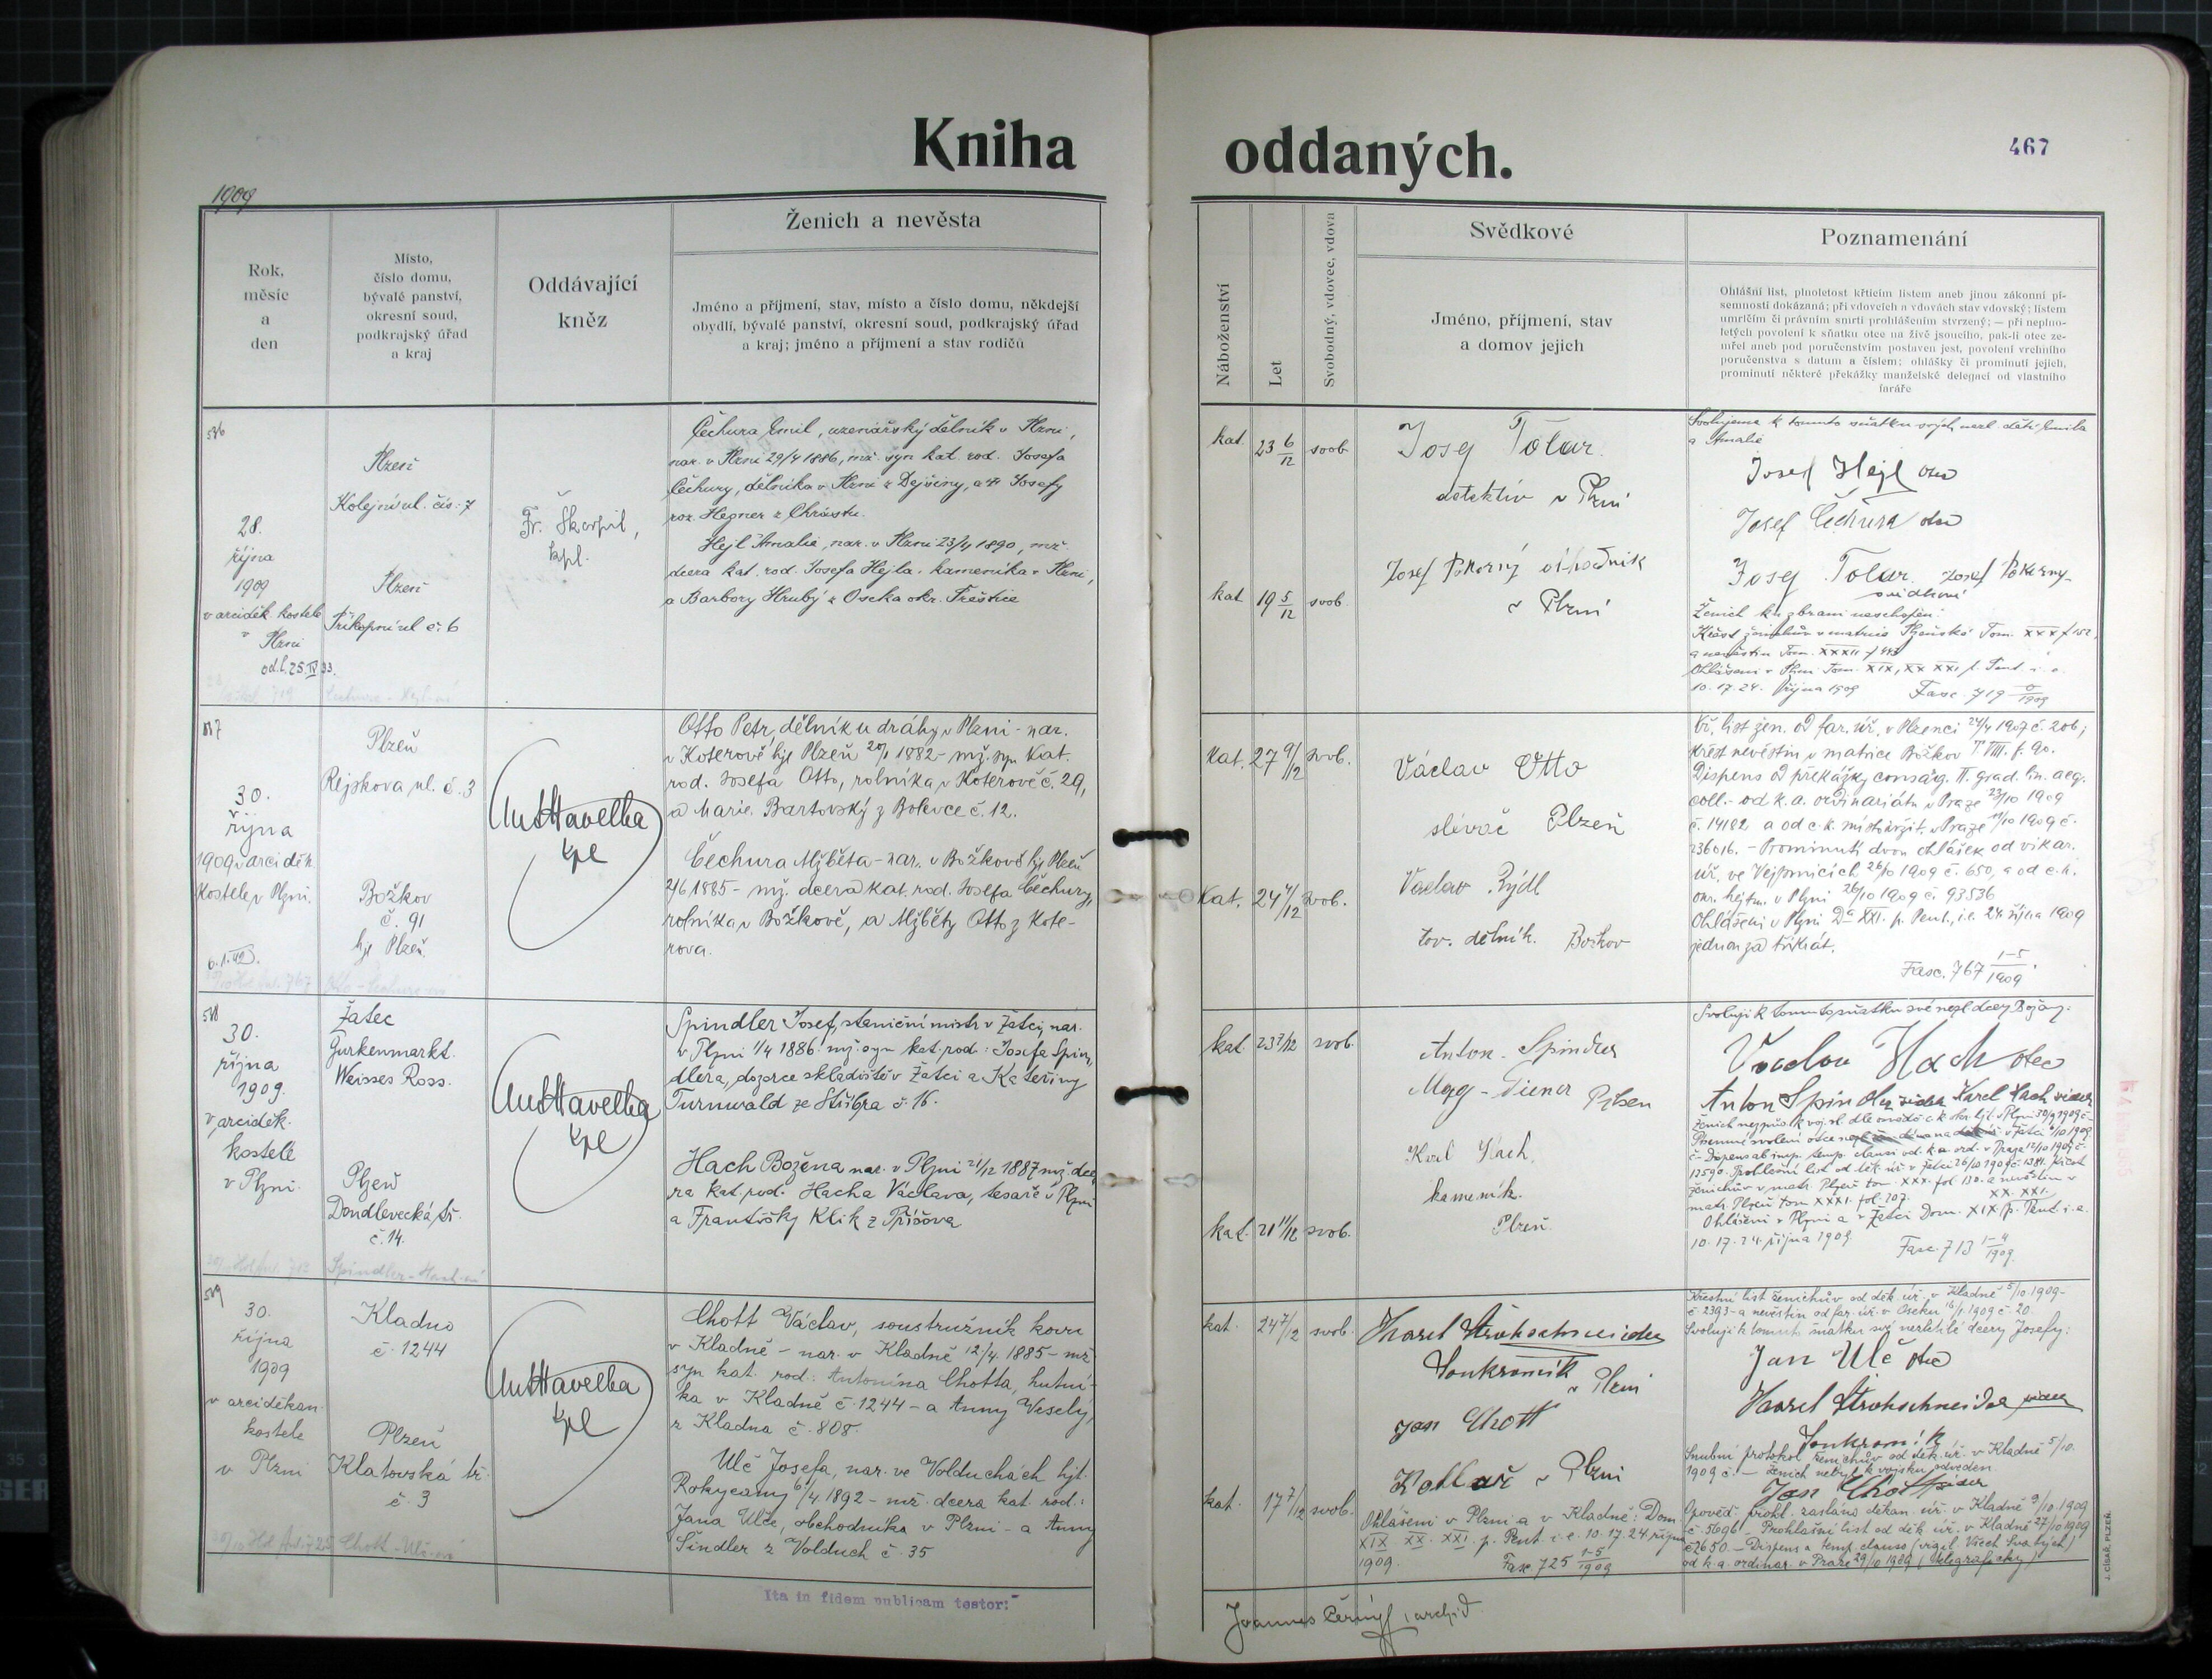 Kniha oddaných.
467
1909
Rok,
měsíc
a
den
Místo,
číslo domu,
bývalé panství,
okresní soud,
podkrajský úřad
a kraj
Oddávající
kněz
Ženich a nevěsta
Jméno a příjmení, stav, místo a číslo domu, někdejší
obydlí, bývalé panství, okresní soud, podkrajský úřad
a kraj; jméno a příjmení a stav rodičů
Náboženství
Let
Svobodný, vdovec, vdova
Svědkové
Jméno, příjmení, stav
a domov jejich
Poznamenání
Ohlášní list, plnoletost křticím listem aneb jinou zákonní pí-
semností dokázaná; při vdovcích a vdovách stav vdovský; listem
umrlčím či právním smrti prohlášením stvrzený; — při neplno-
letých povolení k sňatku otce na živě jsoucího, pak-li otec ze-
mřel aneb pod poručenstvím postaven jest, povolení vrchního
poručenstva s datum a číslem; ohlášky či prominutí jejich,
prominutí některé překážky manželské delegací od vlastního
faráře
28.
října
1909
v arciděk. kostele
v
Plzni
od.l. 25 IV 33.
Plzeň
Kolejní ul. čís: 7
Plzeň
Příkopní ul č. 6
Fr. Škorpil,
kpl.
Čechura Emil, uzenářský dělník v Plzni,
nar. v Plzni 29/4 1886, mž. syn kat. rod. Josefa
Čechury, dělníka v Plzni z Dejšiny, a Josefy
roz. Hegner z Chrástu.
Hejl Amalie, nar. v Plzni 23/4 1890, mž.
dcera kat. rod. Josefa Hejla, kameníka v Plzni,
a Barbory Hrubý z Oseka okr. Přeštice
kat. 23 6/12 svob
kat 19 5/12 svob.
Josef Tolar
detektiv v Plzni
Josef Pokorný obchodník
v Plzni
Svolujeme k tomuto sňatku svých nezl. dětí Emila
a Amalie
Josef Hejl otec
Josef Čechura otec
Josef Tolar Josef Pokorny
svědkové
Ženich ku zbrani neschopen.
Křest ženichův v matrice Plzeňské Tom. XXX f 152,
a nevěstin Tom. XXXII f
Ohlášeni v Plzni Dom. XIX, XX XXI p. Pent i. e.
10. 17. 24. října 1909 Fasc. 719
30.
října
1909 v arciděk.
kostele v Plzni.
Plzeň
Rejskova ul. č. 3
Božkov
č. 91
hjt Plzeň.
Ant Havelka
kpl
Otto Petr, dělník u dráhy v Plzni - nar.
v Koterově hjt Plzeň 20/1 1882 - mž. syn kat.
rod. Josefa Otto, rolníka v Koterově č. 29,
a Marie Bartovský z Bolevce č. 12.
Čechura Alžběta - nar. v Božkově hjt Plzeň
2/6 1885 - mž. dcera kat. rod. Josefa Čechury,
rolníka v Božkově, a Alžběty Otto z Kote-
rova.
kat. 27 9/12 svob.
kat. 24 4/12 svob.
Václav Otto
slévač Plzeň
Vaclav Rýdl
tov. dělník. Božkov
Kř. list žen. od far. úř. v Plzenci 24/4 1907 č. 206;
křest nevěstin v matrice Božkov T VIII. f. 90.
Dispens od překážky consang. II. grad. lin. aeq.
coll. - od k. a. ordinariátu v Praze 23/10 1909
č. 14182 a od c. k. místodržit. v Praze 19/10 1909 č.
236016. - Prominutí dvou ohlášek od vikar.
úř. ve Vejprnicích 26/10 1909 č. 650, a od c. k.
okr. hejtm. v Plzni 26/10 1909 č. 93536
Ohlášeni v Plzni Dom XXI. p. Pent., i. e. 24. října 1909
jednou za třikrát.
Fasc. 767 1-5/1909.
30.
října
1909.
v arciděk.
kostele
v Plzni.
Žatec
Gurkenmarkt.
Weisses Ross.
Plzeň
Doudlevecká tř.
č. 14.
Ant Havelka
kpl
Spindler Josef, staniční mistr v Žatci, nar.
v Plzni 1/4 1886. mž. syn kat. rod: Josefa Spin-
dlera, dozorce skladiště v Žatci a Kateřiny
Turnwald ze Stříbra č. 16.
Hach Božena nar. v Plzni 21/12 1887 mž. dce-
ra kat. rod. Hacha Václava, tesaře v Plzni
a Františky Klik z Příčova
kat. 23 7/12 svob.
kat. 21 11/12 svob.
Anton Spindler
Pilsen
Karel Hach,
kameník.
Plzeň.
Svoluji k tomuto sňatku své nezl. dcery Boženy:
Vaclav Hach otec
Anton Spindler svědek Karel Hach svědek
matr. Plzeň tom XXXI. fol. 207.
Ohlášeni v Plzni a v Žatci Dom. XIX, XX. XXI. p. Pent. i. e.
10. 17. 24. října 1909.
Fasc. 713 1-4/1909.
30.
října
1909
v arciděkan.
kostele
v Plzni
Kladno
č. 1244
Plzeň
Klatovská tř.
č. 3
Ant Havelka
kpl
Chott Václav, soustružník kovu
v Kladně - nar. v Kladně 12/4. 1885 - mž.
syn kat. rod.: Antonína Chotta, hutní-
ka v Kladně č. 1244 - a Anny Veselý
z Kladna č. 808.
Ulč Josefa, nar. ve Volduchách hjt.
Rokycany 6/4. 1892 - mž. dcera kat. rod.:
Jana Ulče, obchodníka v Plzni - a Anny
Šindler z Volduch č. 35
kat. 24 7/12 svob.
kat. 17 7/12 svob.
Karel Strohschneider
Soukromník
v Plzni
Jan Chott
Kotlář v Plzni
Ohlášeni v Plzni a v Kladně: Dom.
XIX. XX. XXI. p. Pent. i. e. 10. 17. 24 října
1909. Fasc. 725 1-5/1909
Křestní list ženichův od děk. úř. v Kladně 5/10 1909 -
č. 2393 - a nevěstin od far. úř. v Oseku 16/1. 1909 č. 20.
Svoluji k tomuto sňatku své nezletilé dcery Josefy:
Jan Ulč otec
Karel Strohschneider svědek
Soukromník
Snubní protokol ženichův od děk. úř. v Kladně 5/10.
1909 č. — ženich nebyl k vojsku odveden.
Jan Chott svědek
Opověď. prohl. zaslána děkan. úř. v Kladně 9/10. 1909
č. 5696 - Prohlašní list od děk. úř. v Kladně 27/10 1909
č. 2650. — Dispens a temp. clauso (vigil. Všech Svatých)
od k. a. ordinar. v Praze 29/10 1909 (telegraficky)
Ita in fidem publicam testor:
Joannes Černý, archid.
J. CÍSAŘ, PLZEŇ.